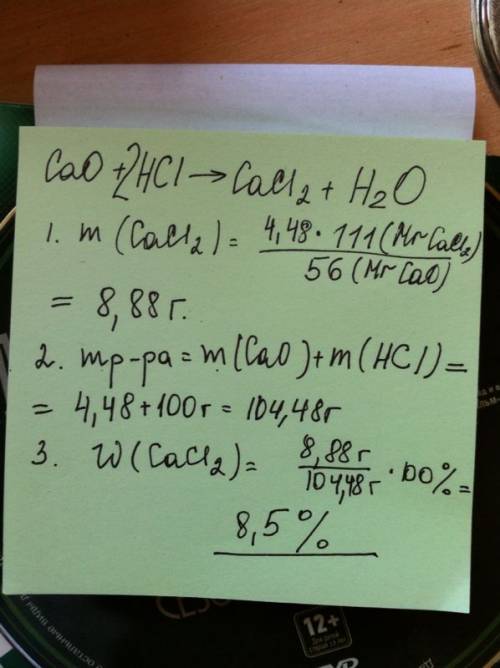 CaO + 2HCl → CaCl₂ + H₂O
1. m (CaCl₂) = 4,48 · 111 (Mr CaCl₂)
56 (Mr CaO)
= 8,88 г.
2. mр-ра = m(CaO) + m(HCl) =
= 4,48 + 100г = 104,48г
3. W (CaCl₂) = 8,88 г · 100% =
104,48 г
8,5 %
12+